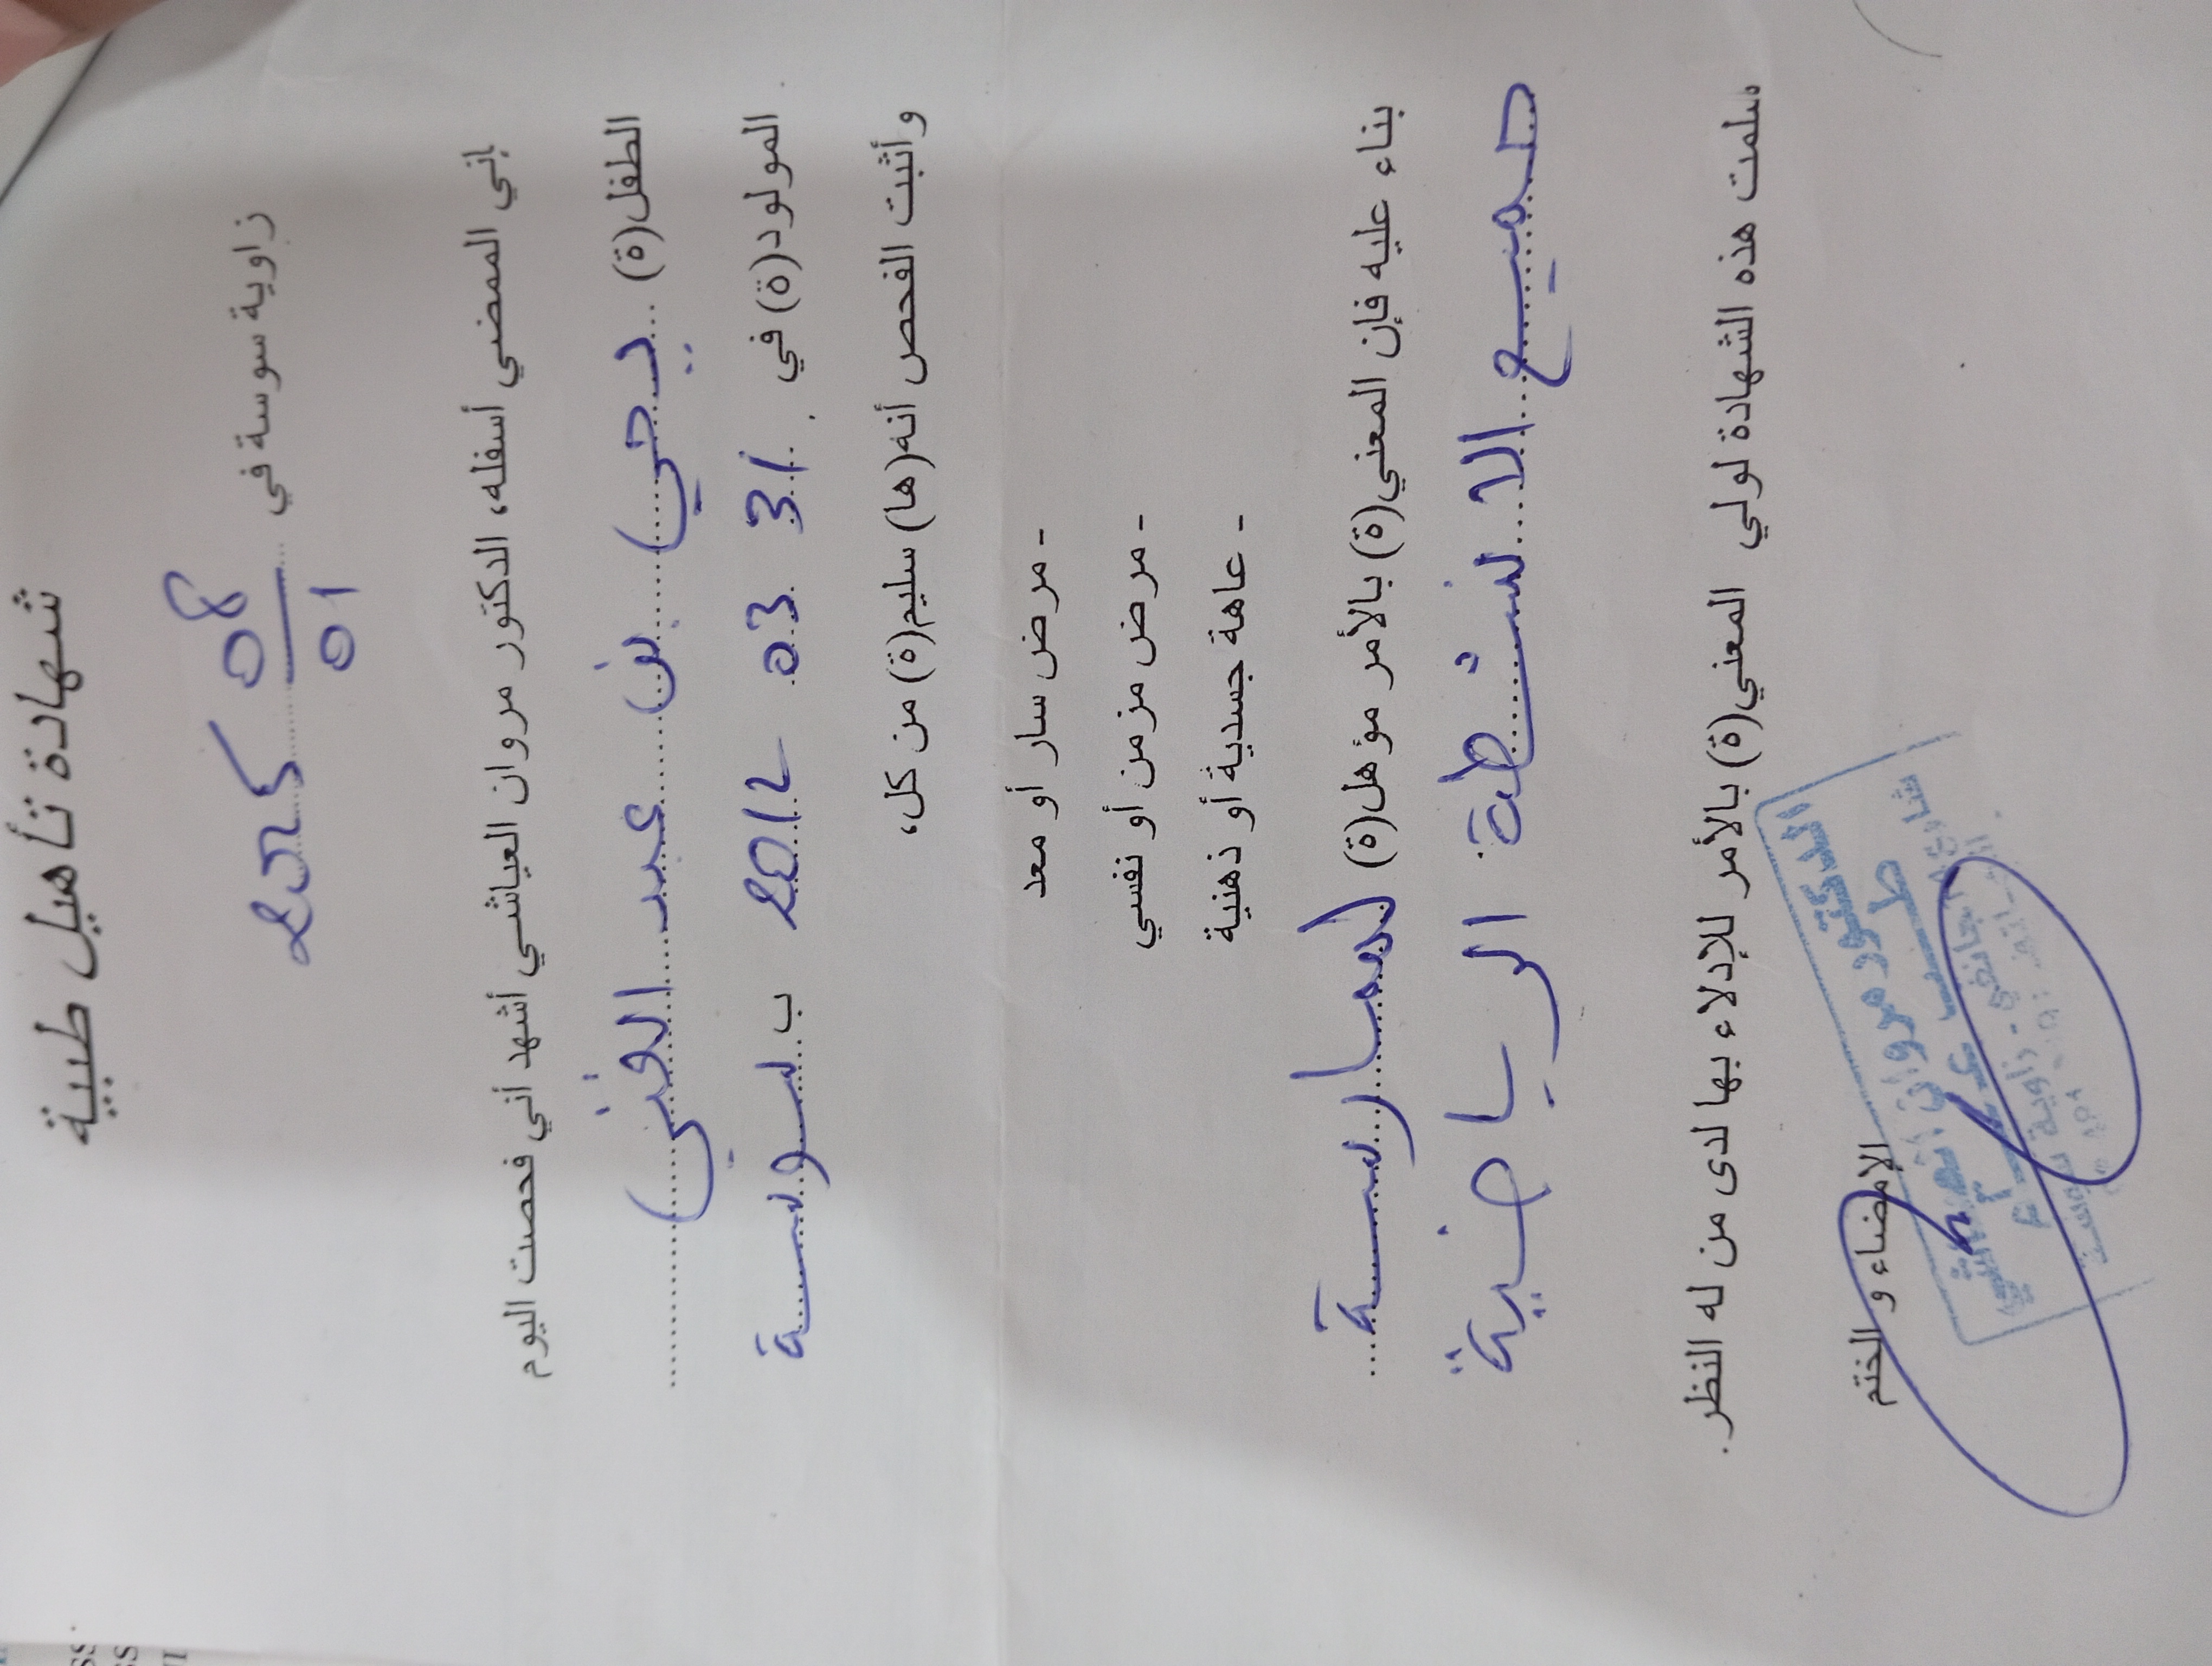 شهادة تأهيل طبية
زاوية سوسة في 08
01 2025
إني الممضي أسفله، الدكتور مروان العياشي أشهد أني فحصت اليوم
الطفل(ة) يحي بن عبد الغني
المولود(ة) في 31 03 2012 ب سوسة
و أثبت الفحص أنه(ها) سليم(ة) من كل،
- مرض سار أو معد
- مرض مزمن أو نفسي
- عاهة جسدية أو ذهنية
بناء عليه فإن المعني(ة) بالأمر مؤهل(ة) لممارسة
جميع الانشطة الرياضية
سلمت هذه الشهادة لولي المعني(ة) بالأمر للإدلاء بها لدى من له النظر.
الإمضاء و الختم
الدكتور مروان العياشي
طبيب عام
زاوية سوسة